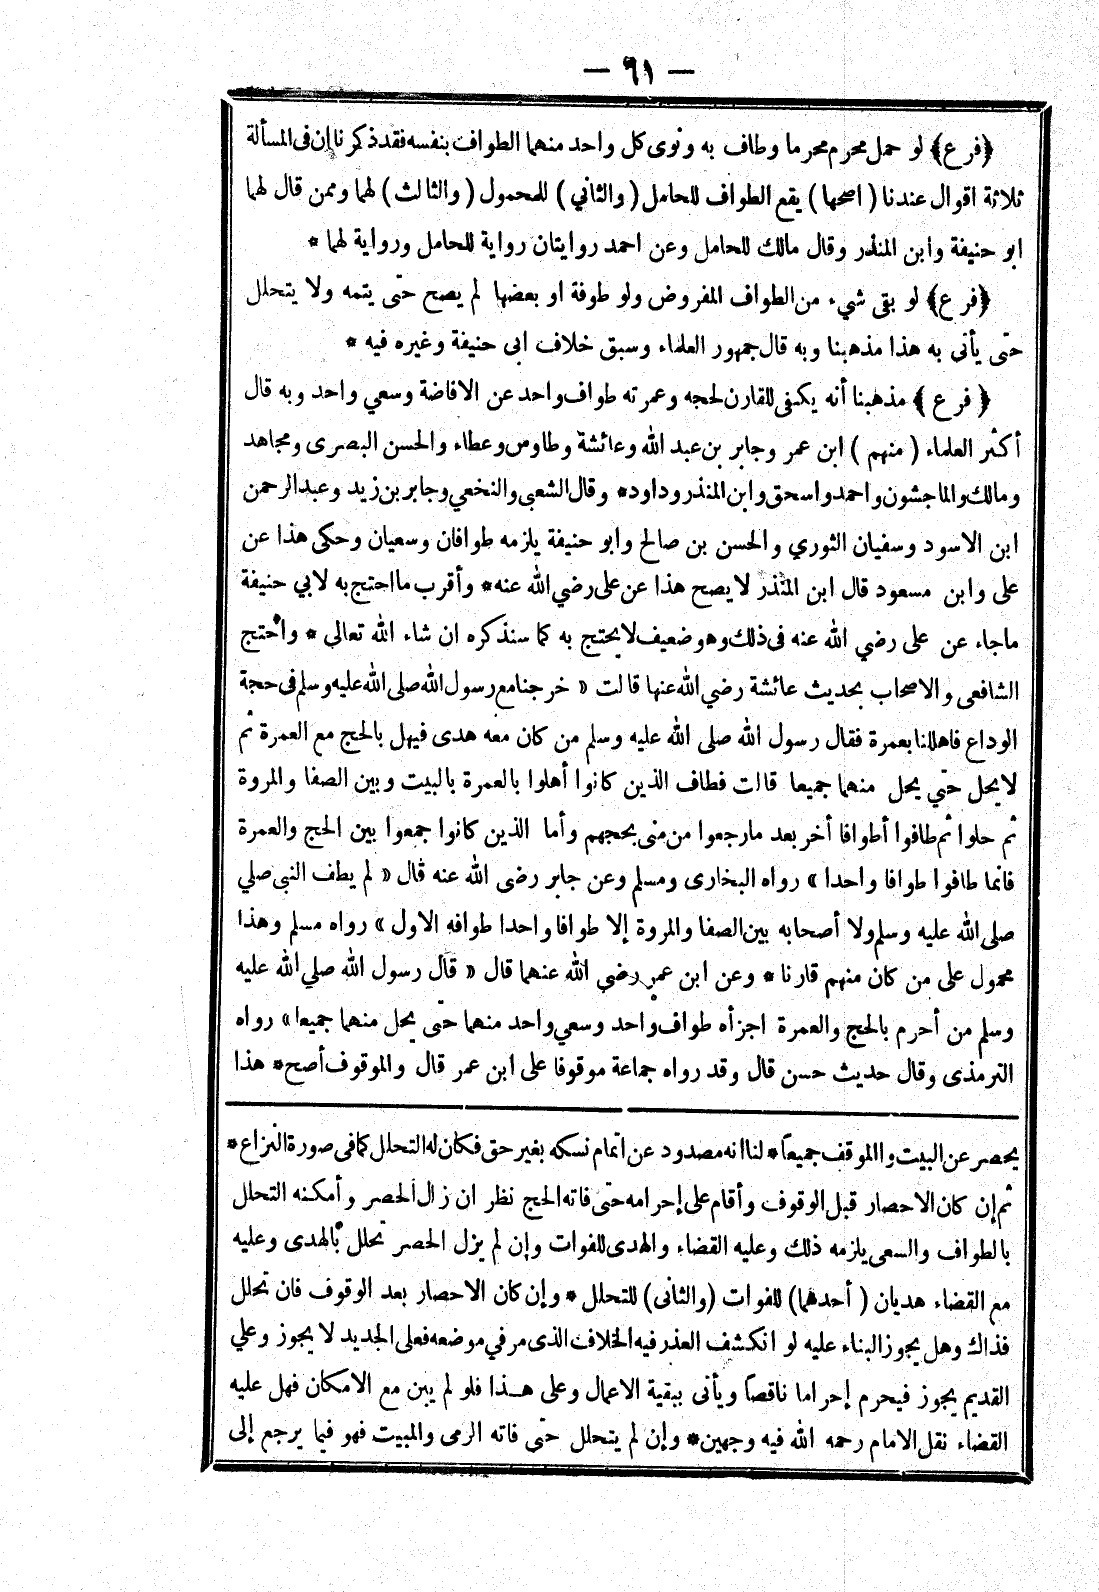 — ٦١ —
﴿فرع﴾ لو حمل محرم محرما وطاف به ونوى كل واحد منهما الطواف بنفسه فقد ذكرنا ان فى المسألة
ثلاثة اقوال عندنا ( اصحها ) يقع الطواف للحامل ( والثاني ) للمحمول ( والثالث ) لهما وممن قال لهما
ابو حنيفة وابن المنذر وقال مالك للحامل وعن احمد روايتان رواية للحامل ورواية لهما *
﴿فرع﴾ لو بقى شيء من الطواف المفروض ولو طوفة او بعضها لم يصح حتى يتمه ولا يتحلل
حتى يأتى به هذا مذهبنا وبه قال جمهور العلماء وسبق خلاف ابى حنيفة وغيره فيه *
﴿ فرع ﴾ مذهبنا أنه يكفى للقارن لحجه وعمرته طواف واحد عن الافاضة وسعي واحد وبه قال
أكثر العلماء ( منهم ) ابن عمر وجابر بن عبد الله وعائشة وطاوس وعطاء والحسن البصرى ومجاهد
ومالك والماجشون واحمد واسحق وابن المنذر وداود* وقال الشعبى والنخعي وجابر بن زيد وعبد الرحمن
ابن الاسود وسفيان الثوري والحسن بن صالح وابو حنيفة يلزمه طوافان وسعيان وحكى هذا عن
على وابن مسعود قال ابن المنذر لا يصح هذا عن على رضي الله عنه* وأقرب ما احتج به لابي حنيفة
ماجاء عن على رضي الله عنه فى ذلك وهو ضعيف لا يحتج به كما سنذكره ان شاء الله تعالى * واحتج
الشافعى والاصحاب بحديث عائشة رضي الله عنها قالت « خرجنا مع رسول الله صلى الله عليه وسلم فى حجة
الوداع فاهللنا بعمرة فقال رسول الله صلى الله عليه وسلم من كان معه هدى فيهل بالحج مع العمرة ثم
لا يحل حتي يحل منهما جميعا قالت فطاف الذين كانوا أهلوا بالعمرة بالبيت وبين الصفا والمروة
ثم حلوا ثم طافوا أطوافا أخر بعد مارجعوا من منى بحجهم وأما الذين كانوا جمعوا بين الحج والعمرة
فانما طافوا طوافا واحدا » رواه البخارى ومسلم وعن جابر رضى الله عنه قال « لم يطف النبى صلي
صلى الله عليه وسلم ولا أصحابه بين الصفا والمروة إلا طوافا واحدا طوافه الاول » رواه مسلم وهذا
محمول على من كان منهم قارنا * وعن ابن عمر رضي الله عنهما قال « قال رسول الله صلي الله عليه
وسلم من أحرم بالحج والعمرة اجزأه طواف واحد وسعي واحد منهما حتى يحل منهما جميعا» رواه
الترمذى وقال حديث حسن قال وقد رواه جماعة موقوفا على ابن عمر قال والموقوف أصح* هذا
يحصر عن البيت واالموقف جميعاً* لنا انه مصدود عن اتمام نسكه بغير حق فكان له التحلل كما فى صورة النزاع*
ثم إن كان الاحصار قبل الوقوف وأقام على إحرامه حتى فاته الحج نظر ان زال الحصر وأمكنه التحلل
بالطواف والسعى يلزمه ذلك وعليه القضاء والهدى للفوات وإن لم يزل الحصر تحلل بالهدى وعليه
مع القضاء هديان ( أحدهما) للفوات (والثانى) للتحلل * وإن كان الاحصار بعد الوقوف فان تحلل
فذاك وهل يجوز البناء عليه لو انكشف العذر فيه الخلاف الذى مر في موضعه فعلى الجديد لا يجوز وعلي
القديم يجوز فيحرم إحراما ناقصاً ويأتى ببقية الاعمال وعلى هـذا فلو لم يبن مع الامكان فهل عليه
القضاء نقل الامام رحمه الله فيه وجهين* وإن لم يتحلل حتى فاته الرمى والمبيت فهو فيما يرجع إلى